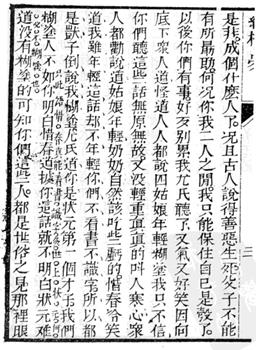 是我成個什麽人了况且古人說得善惡生死父子不能
有所勗助何况你我二人之間我只能保住自己是彀了
以後你們有事好歹別累我尤氏聽了又氣又好笑因向
底下衆人道怪道人人都說四姑娘年輕糊塗我只不信
你們聽這些話無原無故又沒輕重真真的叫人寒心衆
人都勸說道姑娘年輕奶奶自然該吃些虧的惜春冷笑
道我雖年輕這話却不年輕你們不看書不識字所以都
是獃子倒說我糊塗尤氏道你是狀元第一個才子我們
糊塗人不如你明白惜春道據你這話就不明白狀元難
道沒有糊塗的可知你們這些人都是世俗之見那裡眼